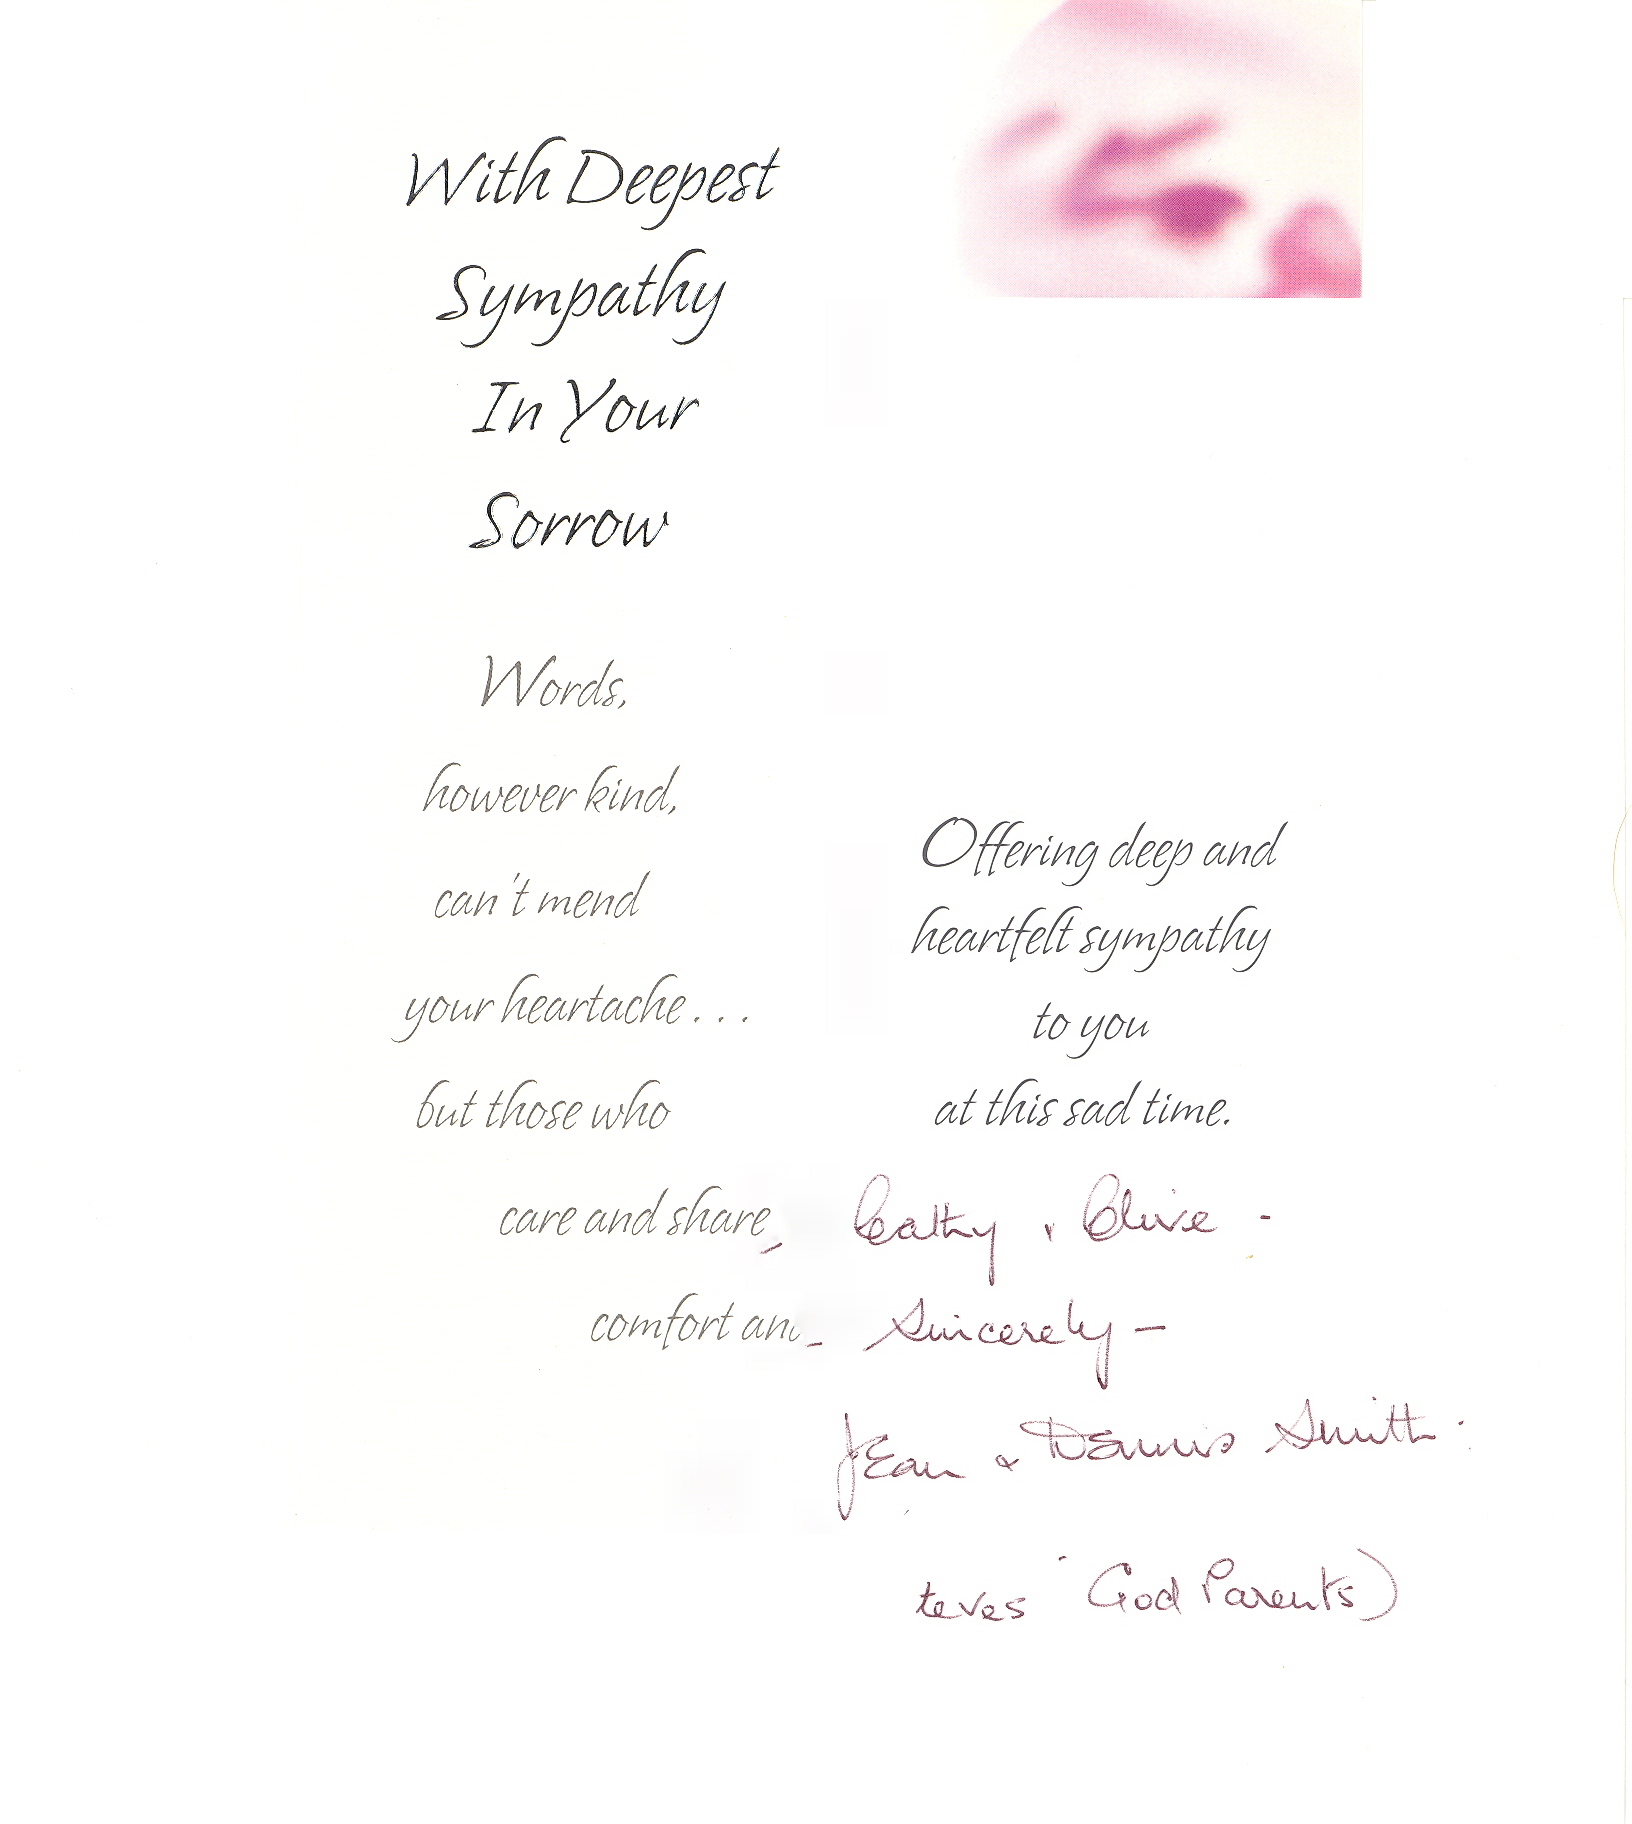 With Deepest
Sympathy
In Your
Sorrow
Words,
however kind,
can't mend
your heartache . . .
but those who
care and share
comfort and
Offering deep and
heartfelt sympathy
to you
at this sad time.
Cathy & Clive -
Sincerely -
Jean & Dennis Smith.
teves God Parents)